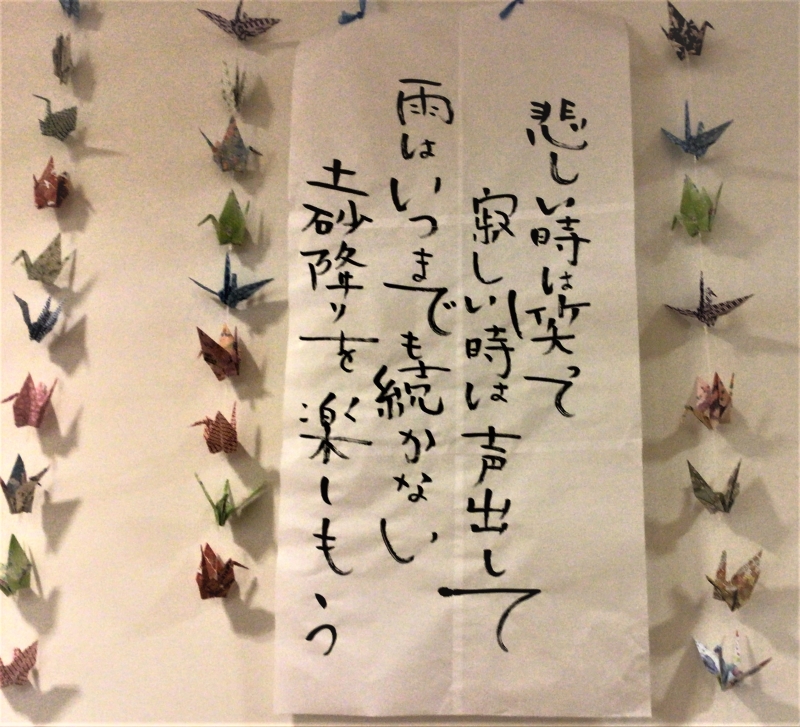 悲しい時は笑って
寂しい時は声出して
雨はいつまでも続かない
土砂降りを楽しもう